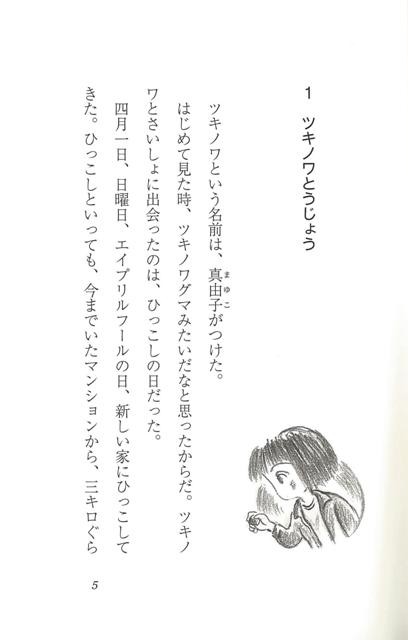 1 ツキノワとうじょう
ツキノワという名前は、真由子がつけた。
まゆこ
はじめて見た時、ツキノワグマみたいだなと思ったからだ。ツキノ
ワとさいしょに出会ったのは、ひっこしの日だった。
四月一日、日曜日、エイプリルフールの日、新しい家にひっこして
きた。ひっこしといっても、今までいたマンションから、三キロぐら
5